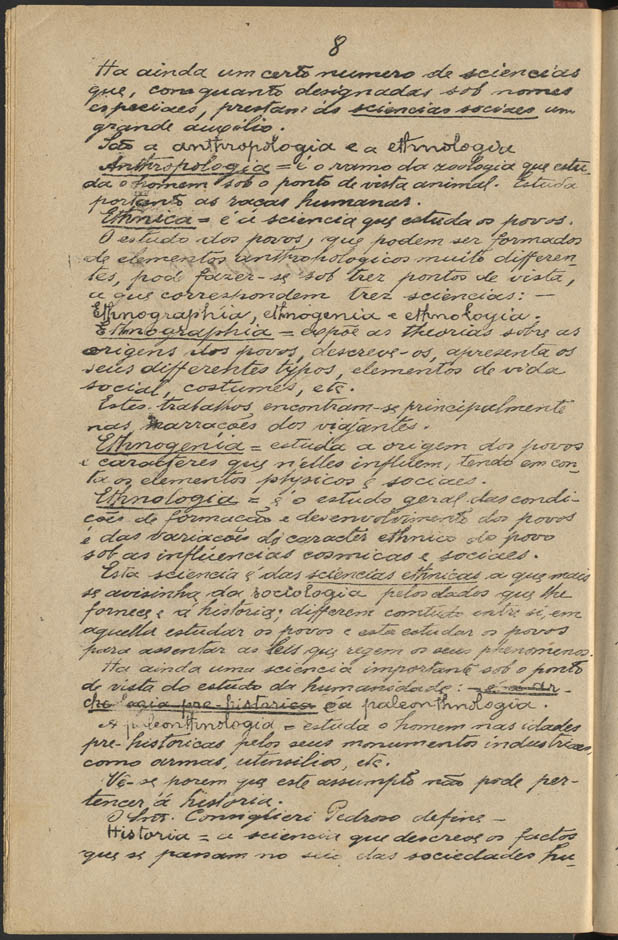 8
Ha ainda um certo numero de sciencias
que, com quanto designadas sob nomes
especiaes, prestam ás sciencias sociaes um
grande auxilio.
São a anthropologia e a ethnologia
Anthropologia = é o ramo da zoologia que estu-
da o homem sob o ponto de vista animal. Estuda
portanto as raças humanas.
Ethnica = é a sciencia que estuda os povos.
O estudo dos povos, que podem ser formados
de elementos anthropologicos muito differen-
tes, pode fazer-se sob trez pontos de vista,
a que correspondem trez sciencias: —
Ethnographia, ethnogenia e ethnologia.
Ethnographia = expõe as theorias sobre as
origens dos povos, descreve-os, apresenta os
seus differentes typos, elementos de vida
social, costumes, etc.
Estes trabalhos, encontram-se principalmente
nas narrações dos viajantes.
Ethnogenia = estuda a origem dos povos
e caracteres que n'elles influem, tendo em con-
ta os elementos physicos e sociaes.
Ethnologia = é o estudo geral das condi-
ções de formação e desenvolvimento dos povos
e das variações do caracter ethnico do povo
sob as influencias cosmicas e sociaes.
Esta sciencia é das sciencias ethnicas a que mais
se avisinha da sociologia pelos dados que lhe
fornece e á historia; differem comtudo entre si, em
aquella estudar os povos e esta estudar os povos
para assentar as leis que regem os seus phenomenos.
Ha ainda uma sciencia importante sob o ponto
de vista do estudo da humanidade: — é a ar-
cheologia pre-historica e a paleonthnologia.
A paleonthnologia = estuda o homem nas idades
pre-historicas pelos seus monumentos industriaes,
como armas, utensilios, etc.
Vê-se porem que este assumpto não pode per-
tencer á historia.
O Snr. Consiglieri Pedroso define —
Historia = a sciencia que descreve os factos
que se passam no seio das sociedades hu-